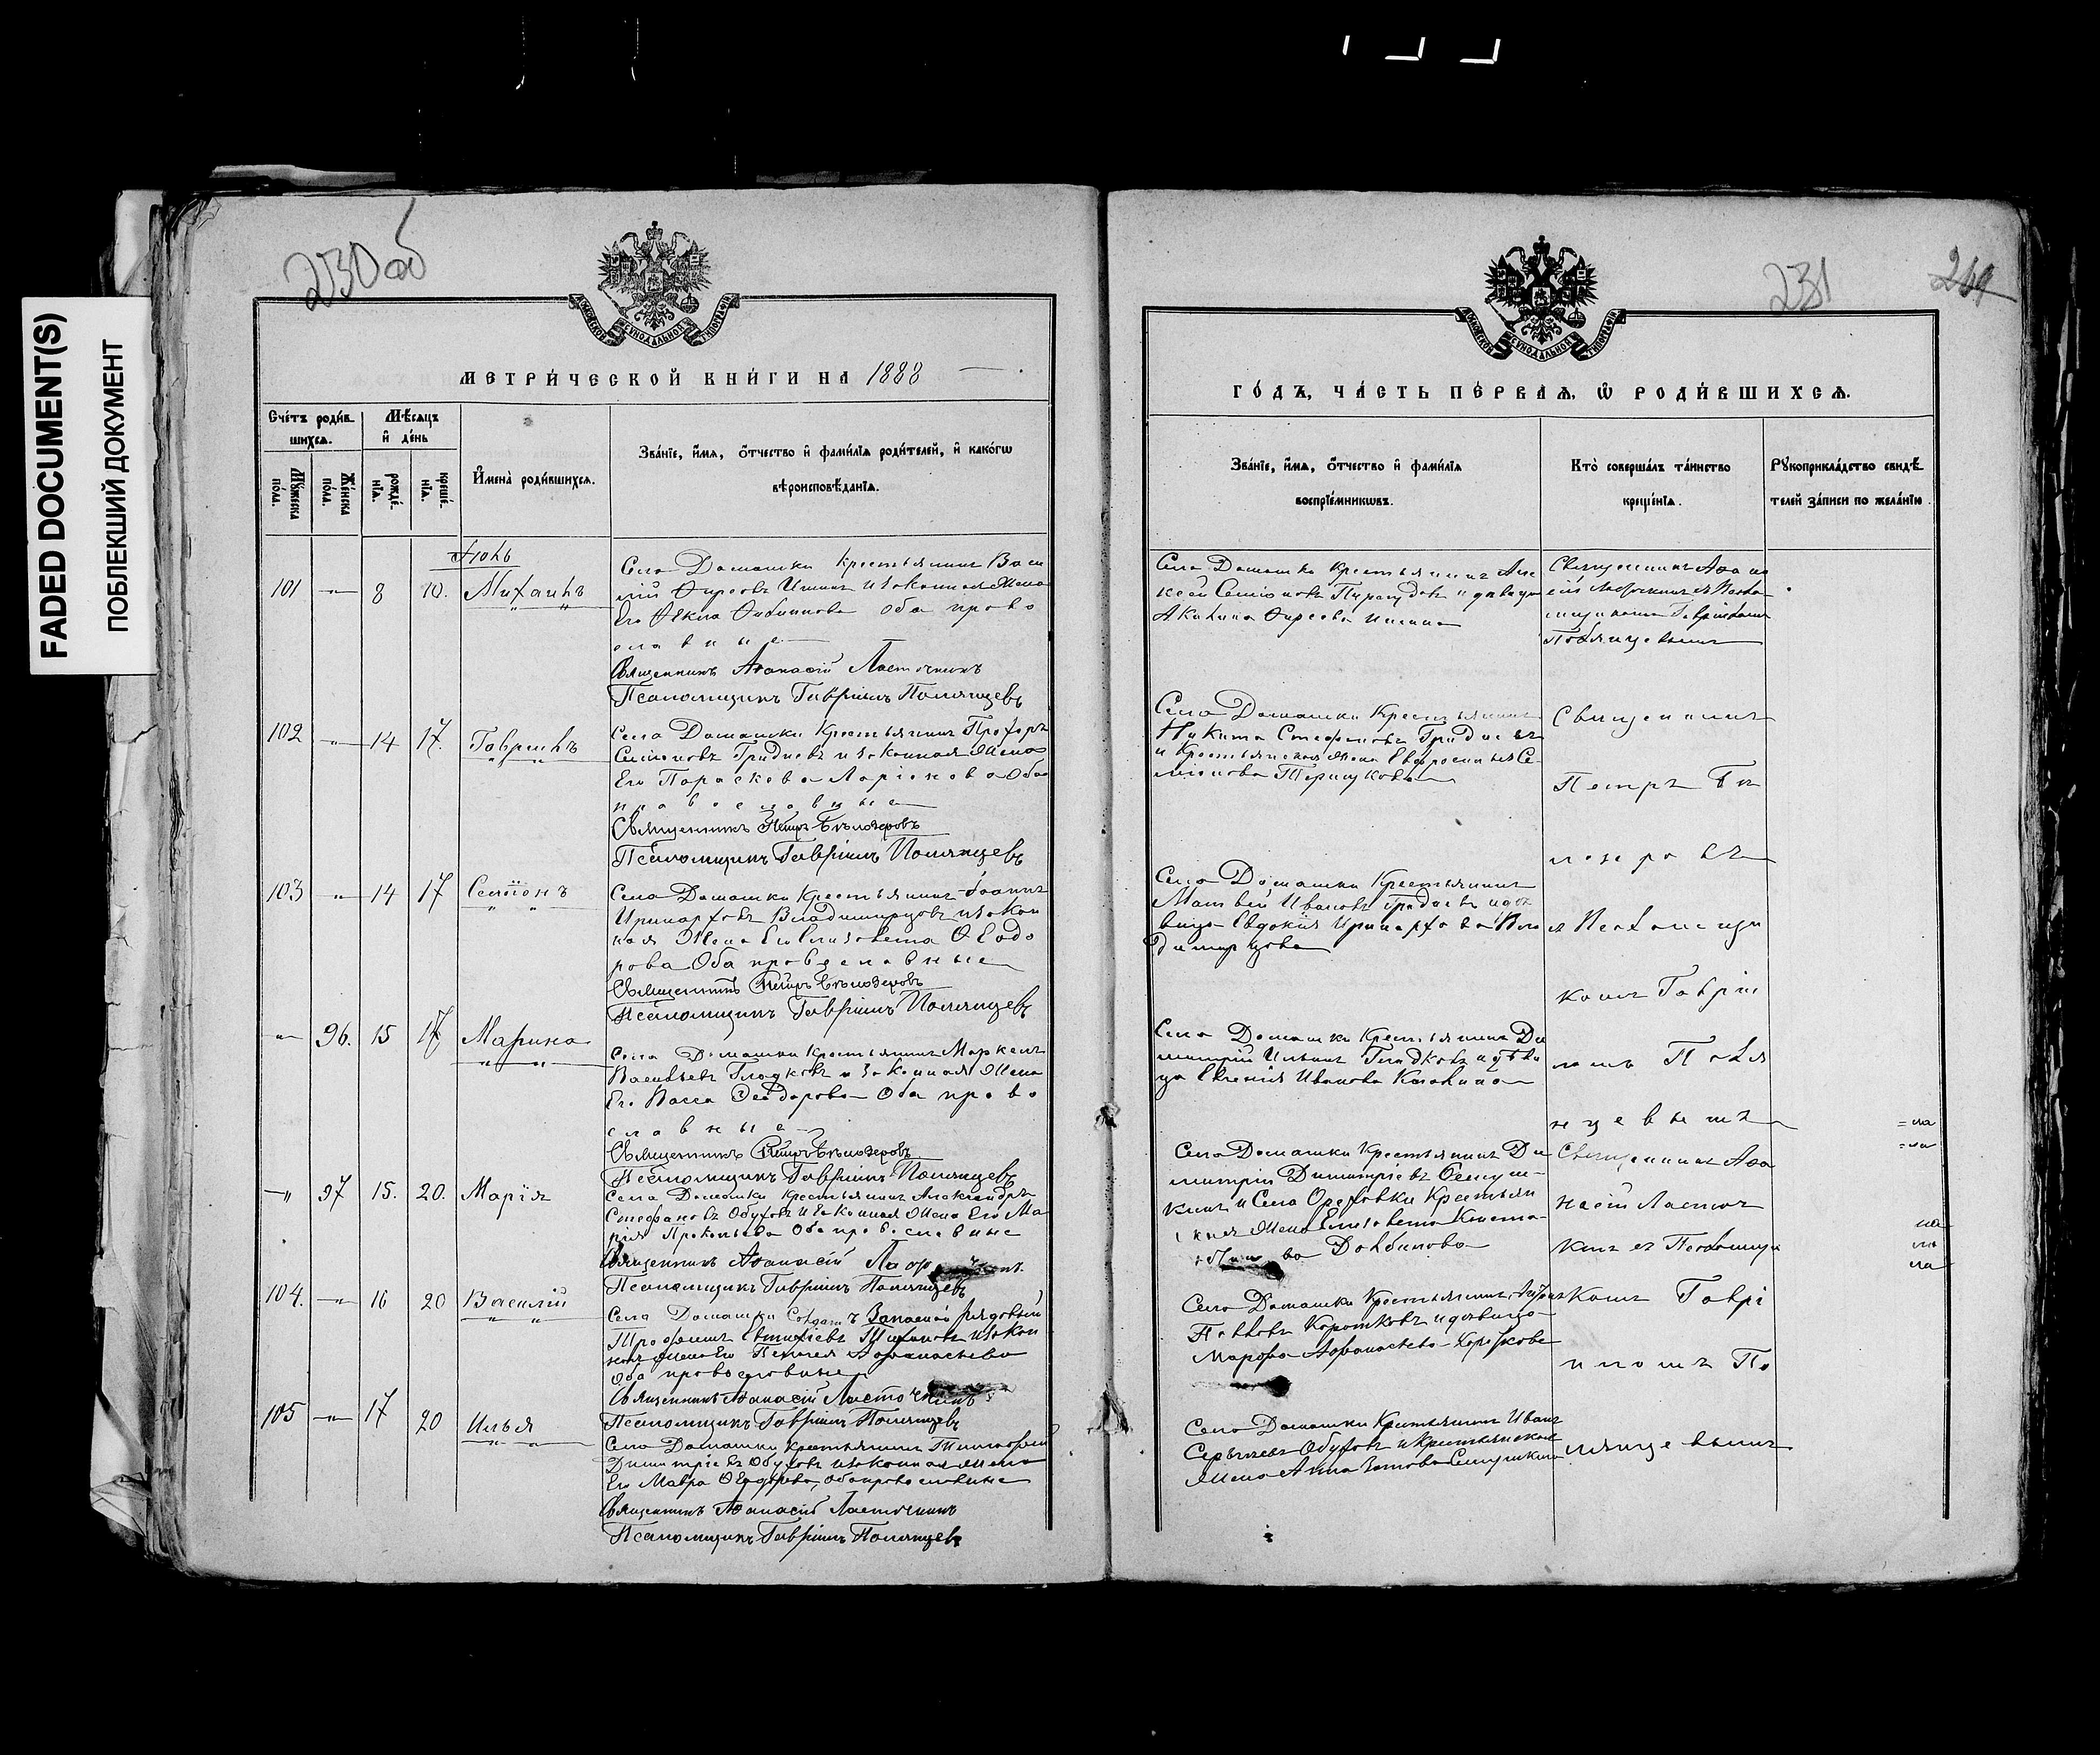 FADED DOCUMENT(S)
ПОБЛЕКШИЙ ДОКУМЕНТ
230 об
МЕТРИ́ЧЕСКОЙ КНИ́ГИ НА 1888
Сче́тъ роди́в-
шихсѧ.
Мѣ́сѧцъ
и҆ де́нь
И҆мена̀ роди́вшихсѧ.
Зва́нїе, и҆́мѧ, ѻ҆́тчество и҆ фами́лїѧ роди́телей, и҆ како́гѡ
вѣроисповѣ́данїѧ.
Мꙋ́жеска
по́ла.
Же́нска
по́ла.
рожде́-
нїѧ.
креще́-
нїѧ.
101 8 10. Михаилъ
Села Домашки Крестьянинъ Васи
его Ѳекла оба право
славные
Священникъ Аѳанасій Ласточкинъ
Псаломщикъ Гавріилъ Полянцевъ
102 14 17. Гавріилъ
Села Домашки Крестьянинъ Прохоръ
Семіоновъ Гридневъ и законная жена
Его Параскева Ларіонова Оба
православные
Священникъ Петръ Бѣлозеровъ
Псаломщикъ Гавріилъ Полянцевъ
103 14 17 Семіонъ
Села Домашки Крестьянинъ Іоаннъ
Иринарховъ Владимірцовъ и закон
ная Жена Его Елизавета Ѳеодо
рова Оба православные
Священникъ Петръ Бѣлозеровъ
Псаломщикъ Гавріилъ Полянцевъ
96. 15 17 Марина
Села Домашки Крестьянинъ Маркелъ
Васильевъ Гладковъ и законная Жена
Его Васса Ѳеодорова Оба право
славные
Священникъ Петръ Бѣлозеровъ
Псаломщикъ Гавріилъ Полянцевъ
97 15. 20. Марія
Села Домашки Крестьянинъ Александръ
Стефановъ Обуховъ и законная Жена Его Ма
рія Прокопьева Оба православные
Священникъ Аѳанасій
Псаломщикъ Гавріилъ Полянцевъ
104. 16 20 Василій
Села Домашки Запасной рядовой
Трофимъ Евтихіевъ и закон
ная жена Его Аѳанасьева
Оба православные
Священникъ Аѳанасій Ласточкинъ
Псаломщикъ Гавріилъ Полянцевъ
105 17 20 Илья
Села Домашки Крестьянинъ Тимоѳей
Димитріевъ Обуховъ и законная жена
Его Мавра Ѳеодорова, оба православные
Священникъ Аѳанасій Ласточкинъ
Псаломщикъ Гавріилъ Полянцевъ
231
ГО́ДЪ, ЧА́СТЬ ПЕ́РВАѦ, Ѡ҆ РОДИ́ВШИХСѦ.
Зва́нїе, и҆́мѧ, ѻ҆́тчество и҆ фами́лїѧ
воспрїе́мникѡвъ.
Кто̀ соверша́лъ та́инство
креще́нїѧ.
Рꙋкоприкла́дство свидѣ́-
телей за́писи по жела́нїю.
Села Домашки Крестьянинъ Але
ксей Семіоновъ и девица
Акилина
Священникъ Аѳана
сій Ласточкинъ съ Псало
мщикомъ Гавріиломъ
Полянцевымъ
Села Домашки Крестьянинъ
Никита Стефановъ Гридневъ
и Крестьянская жена Евфросинья Се
міонова
Священникъ
Петръ Бѣ
лозеровъ
Села Домашки Крестьянинъ
Матвей Ивановъ Гридневъ и де
вица Евдокія Иринархова Вла
димирцова
съ Псаломщи
комъ Гавріи
ломъ Поля
нцевымъ
Села Домашки Крестьянинъ Ди
митрій Ильинъ Гладковъ и дѣви
ца Евгенія Иванова
Села Домашки Крестьянинъ Ди
митрій Димитріевъ Семуш-
кинъ и Села Ореховки Крестьян
ская Жена Елизавета Конста-
Довбинова
Священникъ Аѳа
насій Ласточ
кинъ съ Псаломщи
комъ Гаврі
иломъ По
лянцевымъ
Села Домашки Крестьянинъ
Павловъ Коротковъ и девица
Марѳа Аѳанасьева
Села Домашки Крестьянинъ Иванъ
Сергѣевъ Обуховъ и Крестьянская
Жена Анна Семушкина